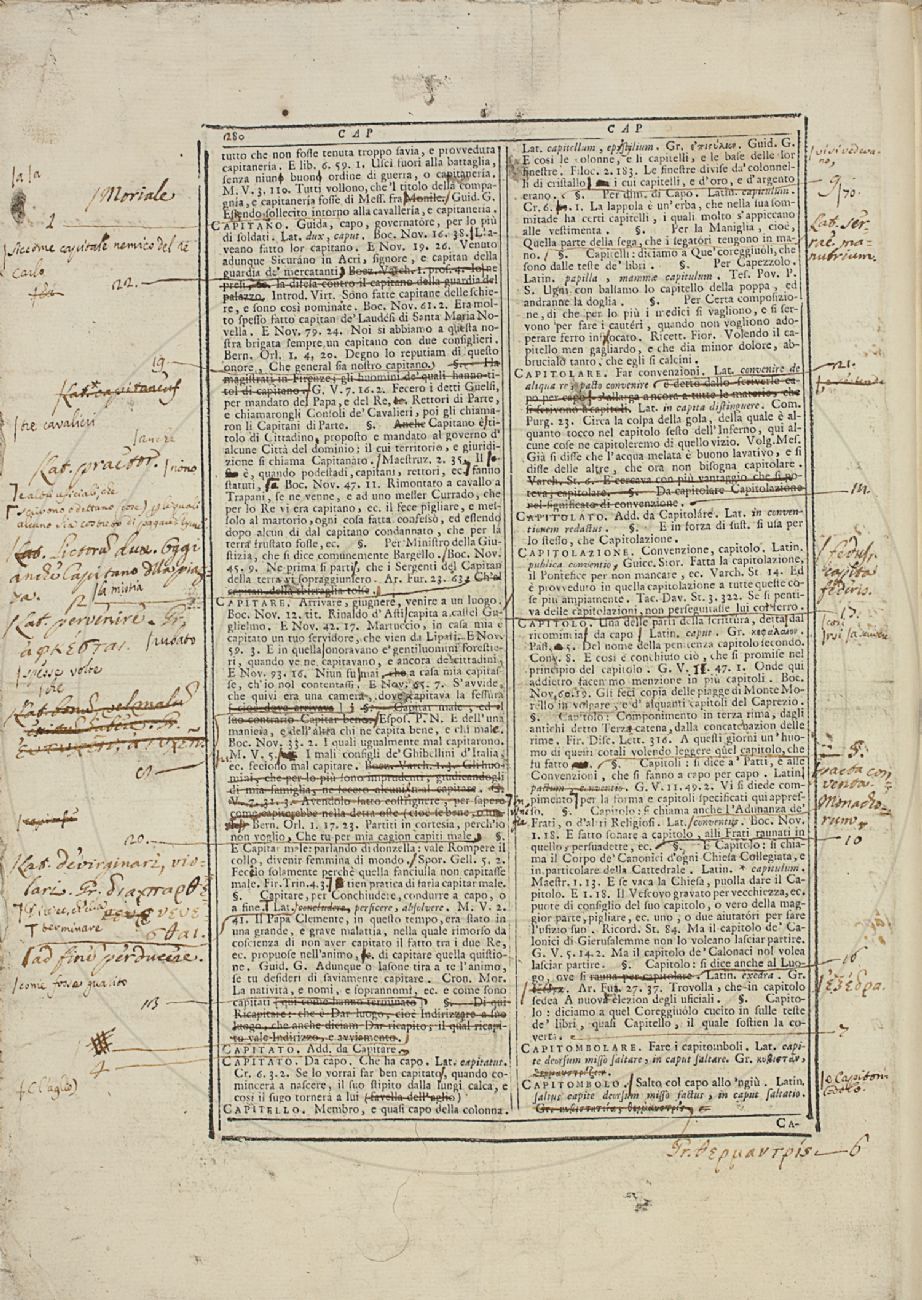 280 CAP CAP
tutto che non fosse tenuta troppo savia, e provveduta
capitaneria. E lib. 6. 59. 1. Uscì fuori alla battaglia,
senza niuno buono ordine di guerra, o capitaneria.
M. V. 3. 110. Tutti vollono, che'l titolo della compa-
gnia, e capitaneria fosse di Mess. fra Guid. G.
Essendo sollecito intorno alla cavalleria, e capitaneria.
CAPITANO. Guida, capo, governatore, per lo più
di soldati. Lat. dux, caput. Boc. Nov. 16. 38. L'a-
veano fatto lor capitano. E Nov. 19. 26. Venuto
adunque Sicurano in Acri, signore, e capitan della
guardia de' mercatanti Boez. Varch. 1. prof. 4. Io ne
presi, ec. la difesa contro il capitano della guardia del
palazzo. Introd. Virt. Sono fatte capitane delle schie-
re, e sono così nominate. Boc. Nov. 61. 2. Era mol-
to spesso fatto capitan de' Laudesi di Santa Maria No-
vella. E Nov. 79. 24. Noi si abbiamo a questa no-
stra brigata sempre un capitano con due consiglieri.
Bern. Orl. 1. 4, 20. Degno lo reputiam di questo
onore, Che general sia nostro capitano. §. Ha
magistrati in Firenze; gli huomini de' quali hanno ti-
tol di capitano. G. V. 7. 16. 2. Fecero i detti Guelfi,
per mandato del Papa, e del Re, Rettori di Parte,
e chiamarongli Consoli de' Cavalieri, poi gli chiama-
ron li Capitani di Parte. §. Anche Capitano è ti-
tolo di Cittadino, proposto e mandato al governo d'
alcune Città del dominio; il cui territorio, e giuridi-
zione si chiama Capitanato. Maestruz. 2. 35. Il
è, quando podestadi, capitani, rettori, ec. fanno
statuti, Boc. Nov. 47. 11. Rimontato a cavallo a
Trapani, se ne venne, e ad uno messer Currado, che
per lo Re vi era capitano, ec. il fece pigliare, e mes-
solo al martorio, ogni cosa fatta confessò, ed essendo
dopo alcun dì dal capitano condannato, che per la
terra frustato fosse, ec. §. Per Ministro della Giu-
stizia, che si dice comunemente Bargello. Boc. Nov.
45. 9. Ne prima si partì, che i Sergenti del Capitan
della terra vi sopraggiunsero. Ar. Fur. 23. 63. Ch'al
capitan della sbirraglia tosto.
CAPITARE. Arrivare, giugnere, venire a un luogo.
Boc. Nov. 12. tit. Rinaldo d'Asti capita a castel Gu-
glielmo. E Nov. 42. 17. Martuccio, in casa mia è
capitato un tuo servidore, che vien da Lipari. E Nov.
59. 3. E in quella onoravano e' gentiluomini forestie-
ri, quando ve ne capitavano, e ancora de' cittadini.
E Nov. 93. 16. Niun su mai, che a casa mia capitas-
se, ch'io nol contentassi. E Nov. 65. 7. S'avvide,
che quivi era una camera, dove capitava la fessura
Capitar male, ed il
suo contrario Capitar bene. Espos. P. N. E dell'una
maniera, e dell'altra chi ne capita bene, e chi male.
Boc. Nov. 33. 2. I quali ugualmente mal capitarono.
M. V. 5. I mali consigli de' Ghibellini d'Italia,
ec. feciono mal capitare. Boez. Varch. 1. 3. Gli huo-
mini, che per lo più sono imprudenti, giudicandogli
di mia famiglia, ne fecero alcuni mal capitare. G.
V. 2. 31. 3. Avendolo fatto costrignere, per sapere
come capiterebbe nella detta oste (cioè se bene, o ma-
le) Bern. Orl. 1. 17. 23. Partiti in cortesia, perch'io
non voglio, Che tu per mia cagion capiti male.
E Capitar male: parlando di donzella: vale Rompere il
collo, divenir femmina di mondo. Spor. Gell. 5. 2.
Feccelo solamente perchè quella fanciulla non capitasse
male. Fir. Trin. 4. 3. E tien pratica di farla capitar male.
§. Capitare, per Conchiudere, condurre a capo, o
a fine. Lat. concludere, perficere, absolvere. M. V. 2.
41. Il Papa Clemente, in questo tempo, era stato in
una grande, e grave malattia, nella quale rimorso da
coscienza di non aver capitato il fatto tra i due Re,
ec. propuose nell'animo, di capitare quella quistio-
ne. Guid. G. Adunque o Iasone tira a te l'animo,
se tu desideri di saviamente capitare. Cron. Mor.
La natività, e nomi, e soprannomi, ec. e come sono
capitati (qui come hanno terminato) §. Di qui
Ricapitare: che è Dar luogo, cioè Indirizzare a suo
luogo, che anche diciam Dar ricapito; il qual ricapi-
to vale Indirizzo, e avviamento.
CAPITATO. Add. da Capitare.
CAPITATO. Da capo. Che ha capo. Lat. capitatus.
Cr. 6. 3. 2. Se lo vorrai far ben capitato, quando co-
mincerà a nascere, il suo stipito dalla fungi calca, e
così il sugo tornerà a lui (favella dell'aglio)
CAPITELLO. Membro, e quasi capo della colonna.
Lat. capitellum, epistylium. Gr. Guid. G.
E così le colonne, e li capitelli, e le base delle lor
finestre. Filoc. 2. 183. Le finestre divise da colonnel-
li di cristallo i cui capitelli, e d'oro, e d'argento
erano. §. Per dim. di Capo. Latin. capitulum.
Cr. 6. 1. La lappola è un'erba, che nella sua som-
mitade ha certi capitelli, i quali molto s'appiccano
alle vestimenta. §. Per la Maniglia, cioè,
Quella parte della sega, che i segatori tengono in ma-
no. §. Capitelli: diciamo a Que' coreggiuoli, che
sono dalle teste de' libri. §. Per Capezzolo.
Latin. papilla, mamma capitulum. Tes. Pov. P.
S. Ugni con ballamo lo capitello della poppa, ed
andranne la doglia. §. Per Certa composizio-
ne, di che per lo più i medici si vagliono, e si ser-
vono per fare i cautéri, quando non vogliono ado-
perare ferro infocato. Ricett. Fior. Volendo il ca-
pitello men gagliardo, e che dia minor dolore, ab-
bruciato tanto, che egli si calcini.
CAPITOLARE. Far convenzioni. Lat. convenire de
aliqua re; pacto convenire e detto dallo scriverle ca-
po per capo, s'allarga ancora a tutte le materie, che
si scrivono a capitoli. Lat. in capita distinguere. Com.
Purg. 23. Circa la colpa della gola, della quale è al-
quanto tocco nel capitolo sesto dell'Inferno, qui al-
cune cose ne capitoleremo di quello vizio. Volg. Mes.
Già si disse che l'acqua melata è buono lavativo, e si
disse delle altre, che ora non bisogna capitolare.
Varch. St. 6. E cercava con più vantaggio che si po-
teva, capitolare. §. Da capitolare Capitolazione
nel significato di convenzione.
CAPITOLATO. Add. da Capitoláre. Lat. in conven-
tionem redactus. §. E in forza di sust. si usa per
lo stesso, che Capitolazione.
CAPITOLAZIONE. Convenzione, capitolo. Latin.
publica conventio. Guicc. Stor. Fatta la capitolazione,
il Pontefice per non mancare, ec. Varch. St. 14. Ed
è provveduto in quella capitolazione a tutte queste co-
se più ampiamente. Tac. Dav. St. 3. 322. Se si penti-
va delle capitolazioni, non perseguitasse lui col ferro.
CAPITOLO. Una delle parti della scrittura, detta dal
ricominciar da capo. Latin. caput. Gr. κεφάλαιον.
Pass. 5. Del nome della penitenza capitolo secondo.
Conv. 8. E così è conchiuso ciò, che si promise nel
principio del capitolo. G. V. 11. 47. 1. Onde qui
addietro facemmo menzione in più capitoli. Boc.
Nov. 60. 19. Gli feci copia delle piagge di Monte Mo-
rello in volgare, e d'alquanti capitoli del Caprezio.
§. Capitolo: Componimento in terza rima, dagli
antichi detto Terza catena, dalla concatenazion delle
rime. Fir. Disc. Lett. 316. A questi giorni un'huo-
mo di questi cotali volendo leggere quel capitolo, che
fu fatto §. Capitoli: si dice a' Patti, e alle
Convenzioni, che si fanno a capo per capo. Latin.
pactum conventio. G. V. 11. 49. 2. Vi si diede com-
pimento per la forma e capitoli specificati qui appres-
so. §. Capitolo: si chiama anche l'Adunanza de'
Frati, o d'altri Religiosi. Lat. conventus. Boc. Nov.
1. 18. E fatto sonare a capitolo, alli Frati raunati in
quello, persuadette, ec. §. E Capitolo: si chia-
ma il Corpo de' Canonici d'ogni Chiesa Collegiata, e
in particolare della Cattedrale. Latin. * capitulum.
Maestr. 1. 13. E se vaca la Chiesa, puolla dare il Ca-
pitolo. E 1. 18. Il Vescovo gravato per vecchiezza, ec.
puote di consiglio del suo capitolo, o vero della mag-
gior parte, pigliare, ec. uno; o due aiutatori per fare
l'ufizio suo. Ricord. St. 84. Ma il capitolo de' Ca-
lonici di Gierusalemme non lo voleano lasciar partire.
G. V. 5. 14. 2. Ma il capitolo de' Calonaci nol volea
lasciar partire. §. Capitolo: si dice anche al Luo-
go, ove si rauna per capitolare. Latin. exedra. Gr.
Ar. Fur. 27. 37. Trovolla, che in capitolo
sedea A nuova elezion degli usiciali. §. Capito-
lo: diciamo a quel Coreggiuolo cucito in sulle teste
de' libri, quasi Capitello, il quale sostien la co-
verta.
CAPITOMBOLARE. Fare i capitomboli. Lat. capi-
te deorsum misso saltare, in caput saltare. Gr. κυβιστᾶν,
CAPITOMBOLO. Salto col capo allo 'ngiù. Latin.
saltus capite deorsum misso factus, in caput saltatio.
CA-
Moriale
siccome capitale nemico del re
Carlo
22.
19
Lat. capitaneus
tre cavalieri
Lat. praetor.
anche Capitano di piaz-
za.
Lat. pervenire. Gr.
spesse volte
20.
Lat. devirginari, vio-
lari. Gr.
terminare
ad finem perducere.
come fosse
13
4
9
70.
Lat. ser-
rae ma-
nubrium.
21.
14.
foedus,
capita
foederis.
17.
8.
pacta con-
venta.
Monacho-
rum
10
16
ἐξέδρα.
7
Capitom-
bolo.
Gr. θερμαντρίς 6